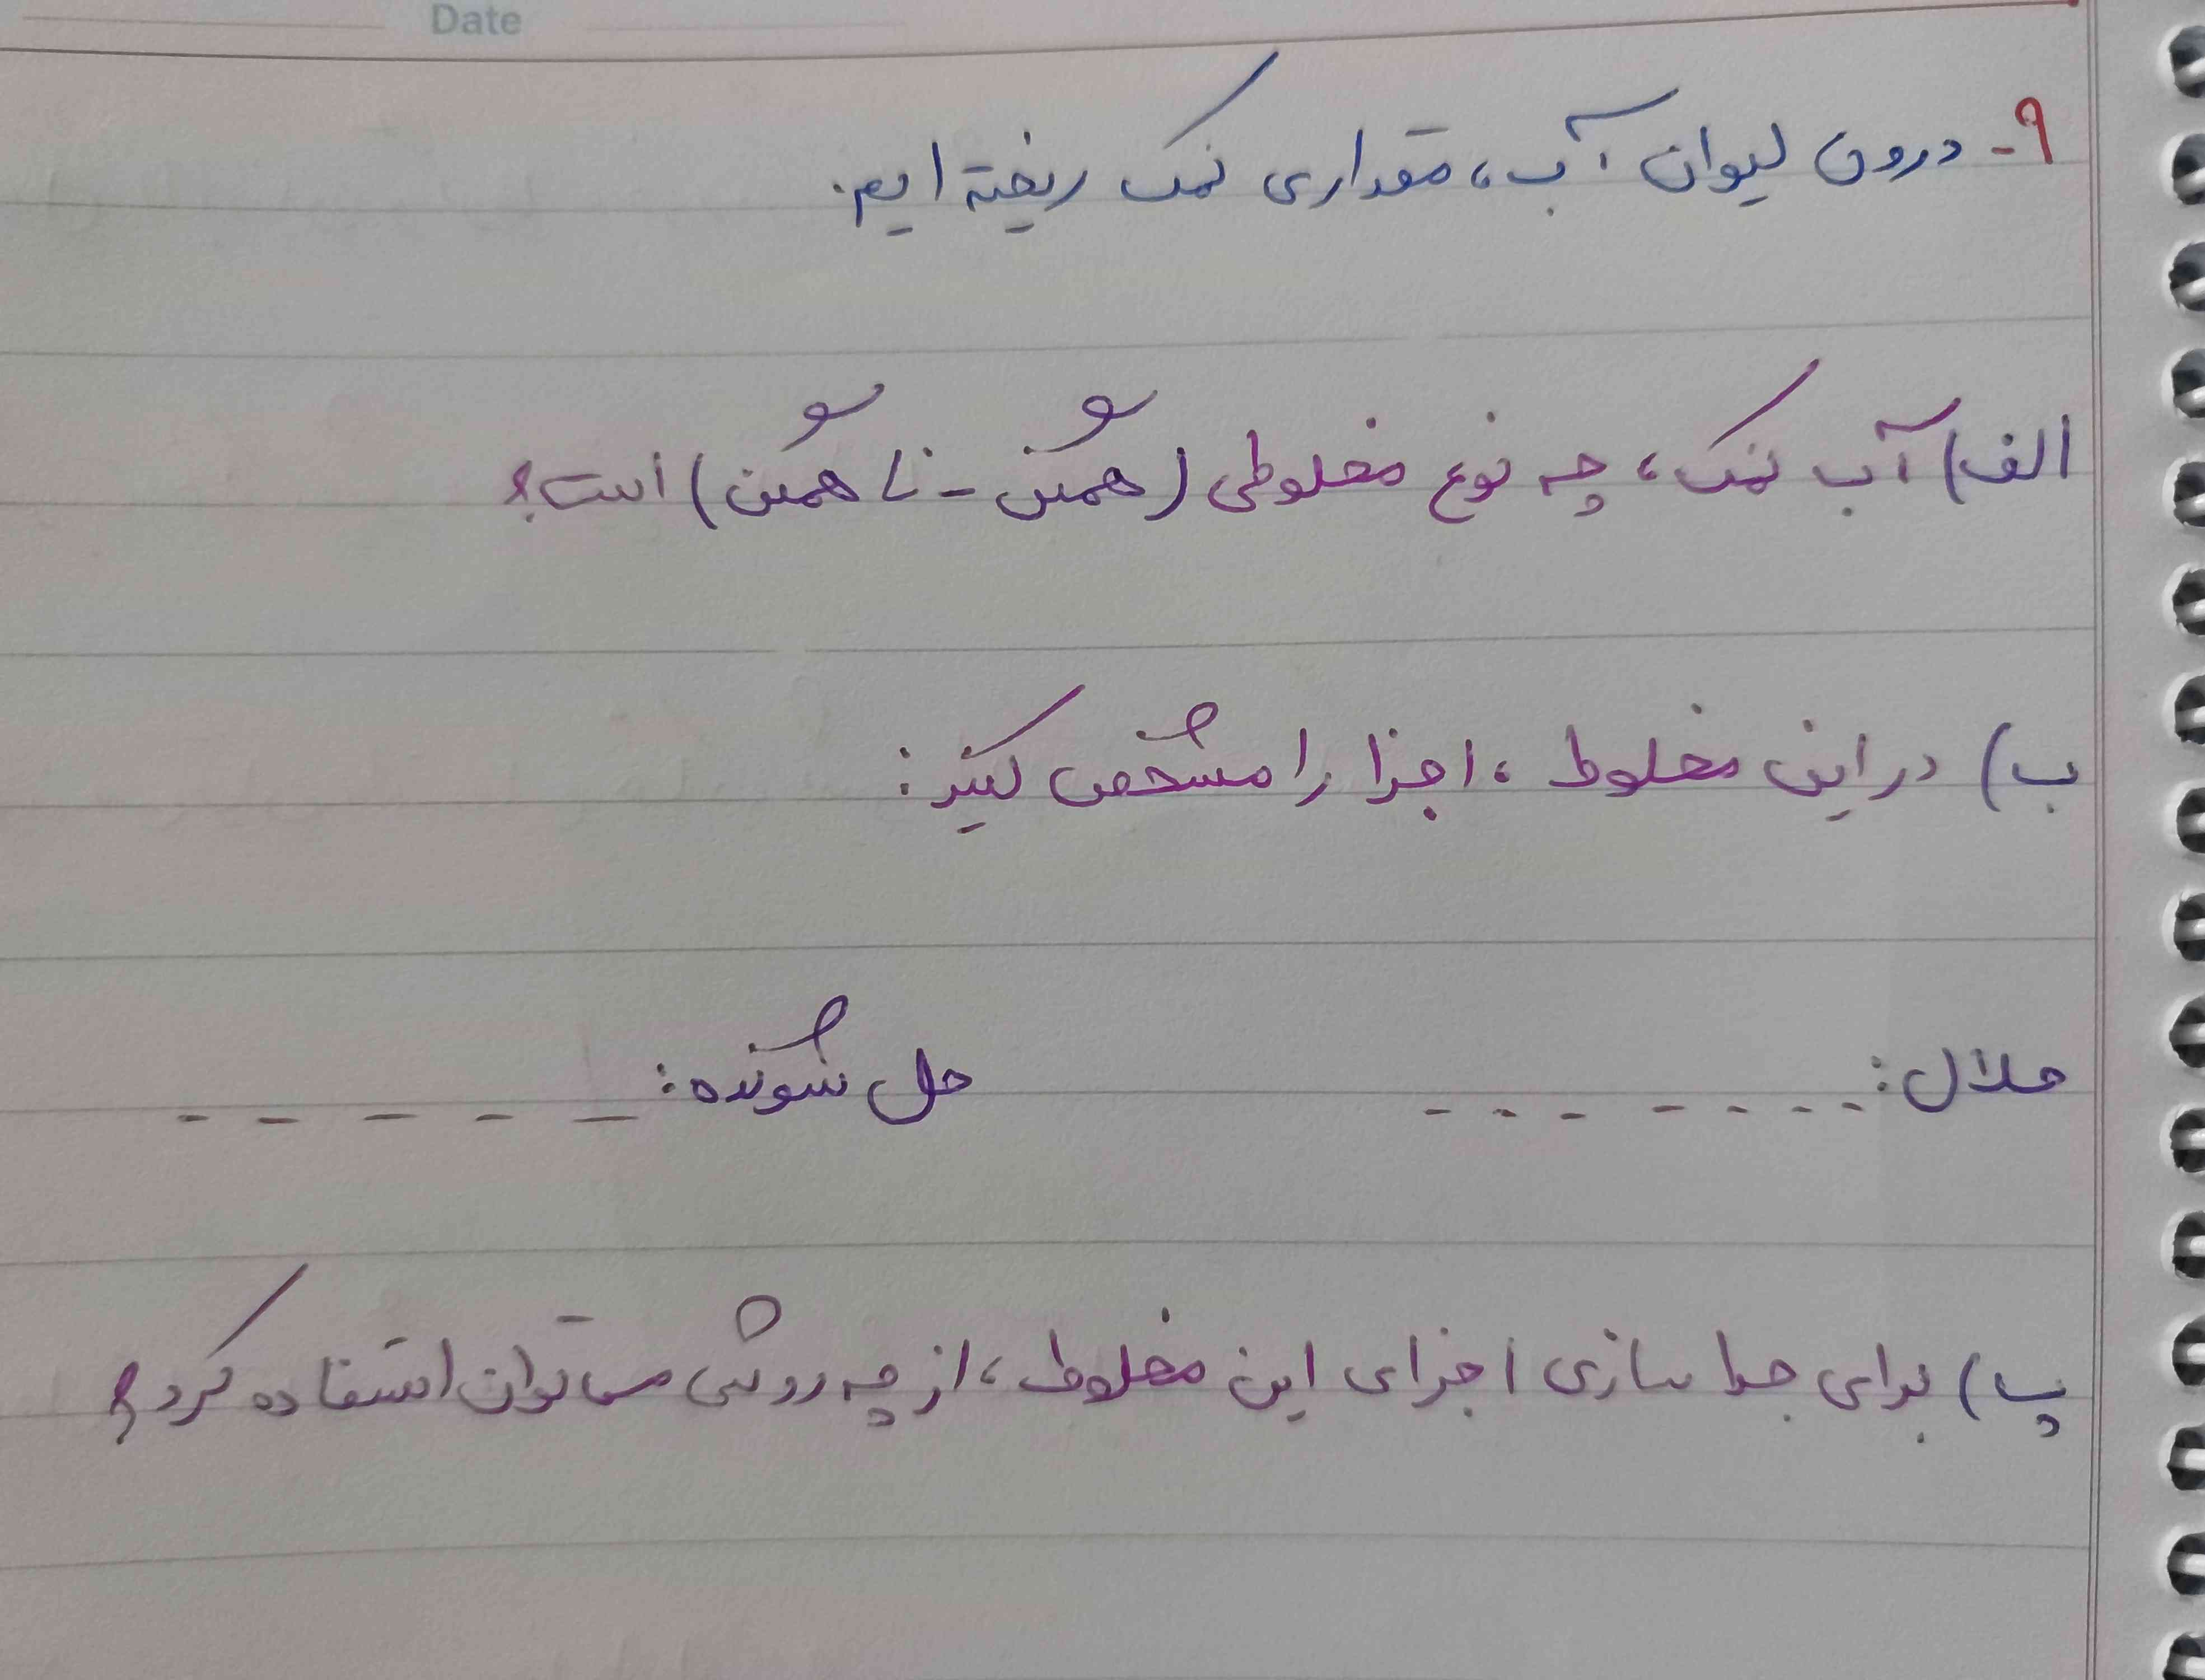 Date
۹- درون لیوان آب، مقداری نمک ریخته ایم.
الف) آب نمک، چه نوع مخلوطی (همگن - ناهمگن) است؟
ب) در این مخلوط، اجزا را مشخص کنید:
حلال: -------- حل شونده: -----
پ) برای جدا سازی اجزای این مخلوط، از چه روشی می توان استفاده کرد؟